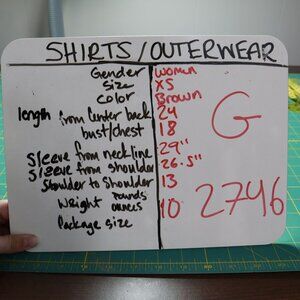 SHIRTS/OUTERWEAR
Gender Women
Size XS
Color Brown
length from Center back 24
bust/chest 18
Sleeve from neckline 29"
Sleeve from shoulder 26.5"
Shoulder to Shoulder 13
Weight pounds
ounces 10
Package size
G
2746